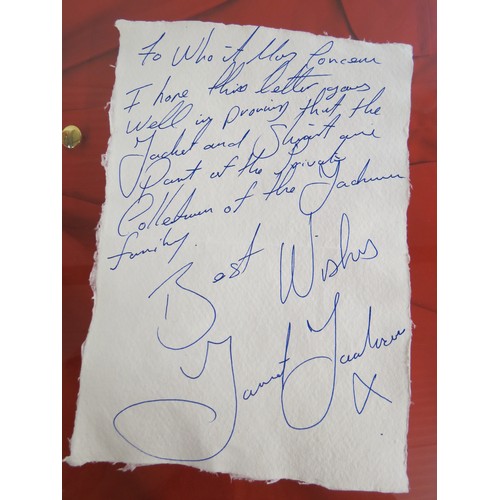 To Who it May Concern
I hope this letter goes
Well in proving that the
Jacket and Shirt are
Part of the Private
Collection of the Jackson
family.
Best Wishes
Janet Jackson
X